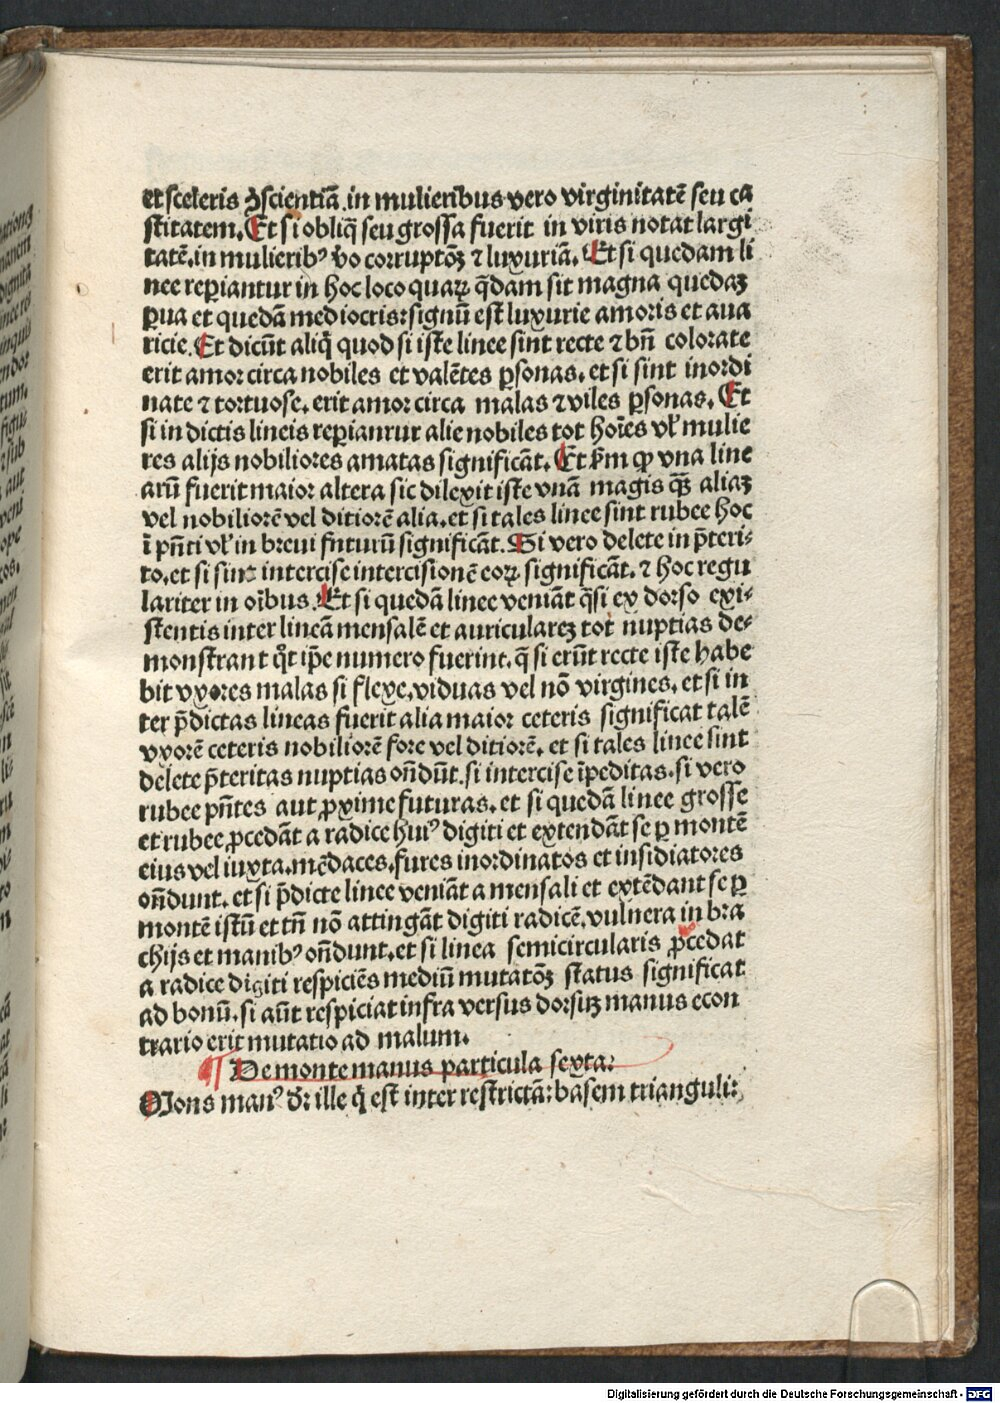 et sceleris ꝯscientiā. in mulieribus vero virginitatē seu ca
stitatem. Et si obliq̄ seu grossa fuerit in viris notat largi
tatē. in mulierib⁹ v̄o corruptōꝫ ⁊ luxuriā. Et si quedam li
nee reꝑiantur in hoc loco quaꝝ q̄dam sit magna quedaꝫ
ꝑua et quedā mediocris: signū est luxurie amoris et aua
ricie. Et dicūt aliq̄ quod si iste linee sint recte ⁊ bn̄ colorate
erit amor circa nobiles et valētes ꝑsonas. et si sint inordi
nate ⁊ tortuose. erit amor circa malas ⁊ viles ꝑsonas. Et
si in dictis lineis reꝑianrur alie nobiles tot hoīes vl̓ mulie
res alijs nobiliores amatas significāt. Et ẜm ꝙ vna line
arū fuerit maior altera sic dilexit iste vnā magis qꝫ̄ aliaꝫ
vel nobiliorē vel ditiorē alia. et si tales linee sint rubee hoc
ī pn̄ti vl̓ in breui fnturū significāt. Si vero delete in p̄teri⸗
to. et si sint intercise intercisionē eoꝝ significāt. ⁊ hoc regu
lariter in oībus. Et si quedā linee veniāt q̄si ex dorso exi⸗
stentis inter lineā mensalē et auriculareꝫ tot nuptias de⸗
monstrant q̄t ip̄e numero fuerint. q̄ si erūt recte iste habe
bit vxores malas si flexe. viduas vel nō virgines. et si in
ter p̄dictas lineas fuerit alia maior ceteris significat talē
vxorē ceteris nobiliorē fore vel ditiorē. et si tales linee sint
delete p̄teritas nuptias on̄dūt. si intercise īpeditas. si vero
rubee pn̄tes aut ꝓxime futuras. et si quedā linee grosse
et rubee ꝓcedāt a radice hui⁹ digiti et extendāt se ꝑ montē
eius vel iuxta. mēdaces. fures inordinatos et insidiatores
on̄dunt. et si p̄dicte linee veniāt a mensali et extēdant se ꝑ
montē istū et tn̄ nō attingāt digiti radicē. vulnera in bra
chijs et manib⁹ on̄dunt. et si linea semicircularis ꝓcedat
a radice digiti respiciēs mediū mutatōꝫ status significat
ad bonū. si aūt respiciat infra versus dorsuꝫ manus econ
trario erit mutatio ad malum.
¶ De monte manus particula sexta:
Mons man⁹ dr̄: ille q̄ est inter restrictā: basem trianguli: